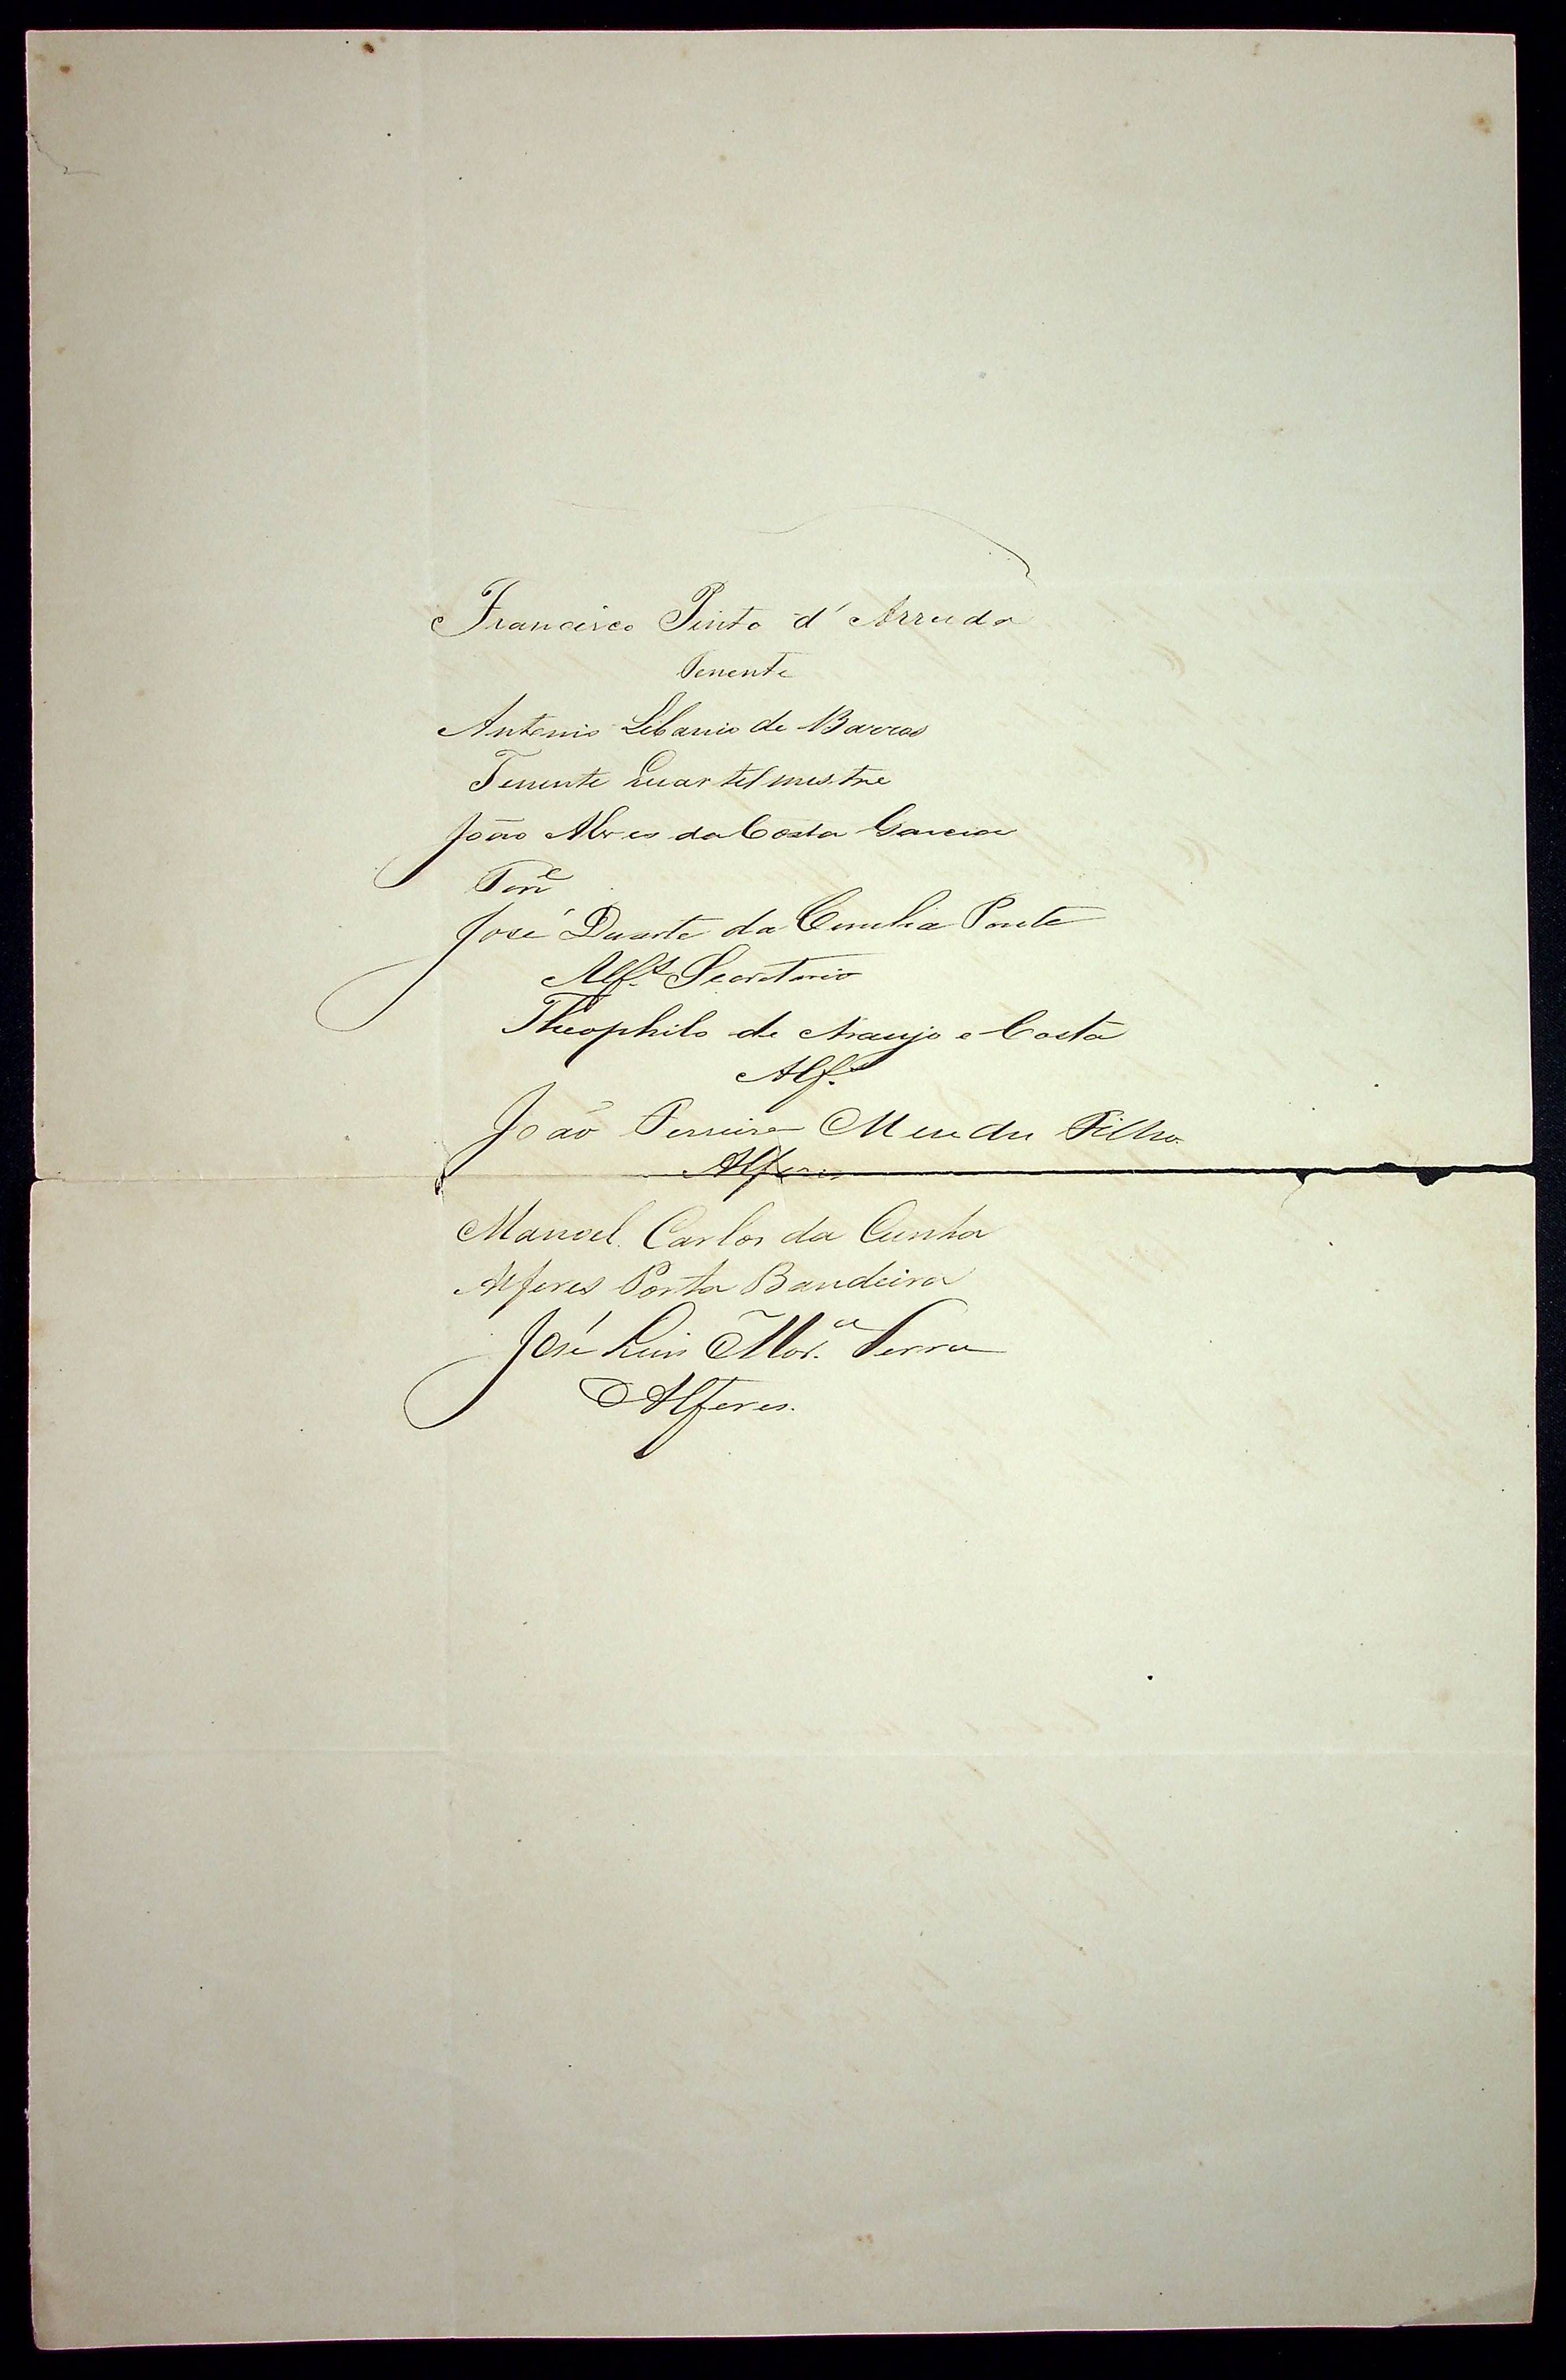 Francisco Pinto d'Arruda
Tenente
Antonio Libanio de Barros
Tenente Quartel mestre
João Alves da Costa Garcia
Tene
José Duarte da Cunha Ponte
Alfs. Secretario
Theophilo de Araujo e Costa
Alfs.
João Ferreira Mendes Filho
Alferes
Manoel Carlos da Cunha
Alferes Porta Bandeira
José Luis Mora. Serra
Alferes.